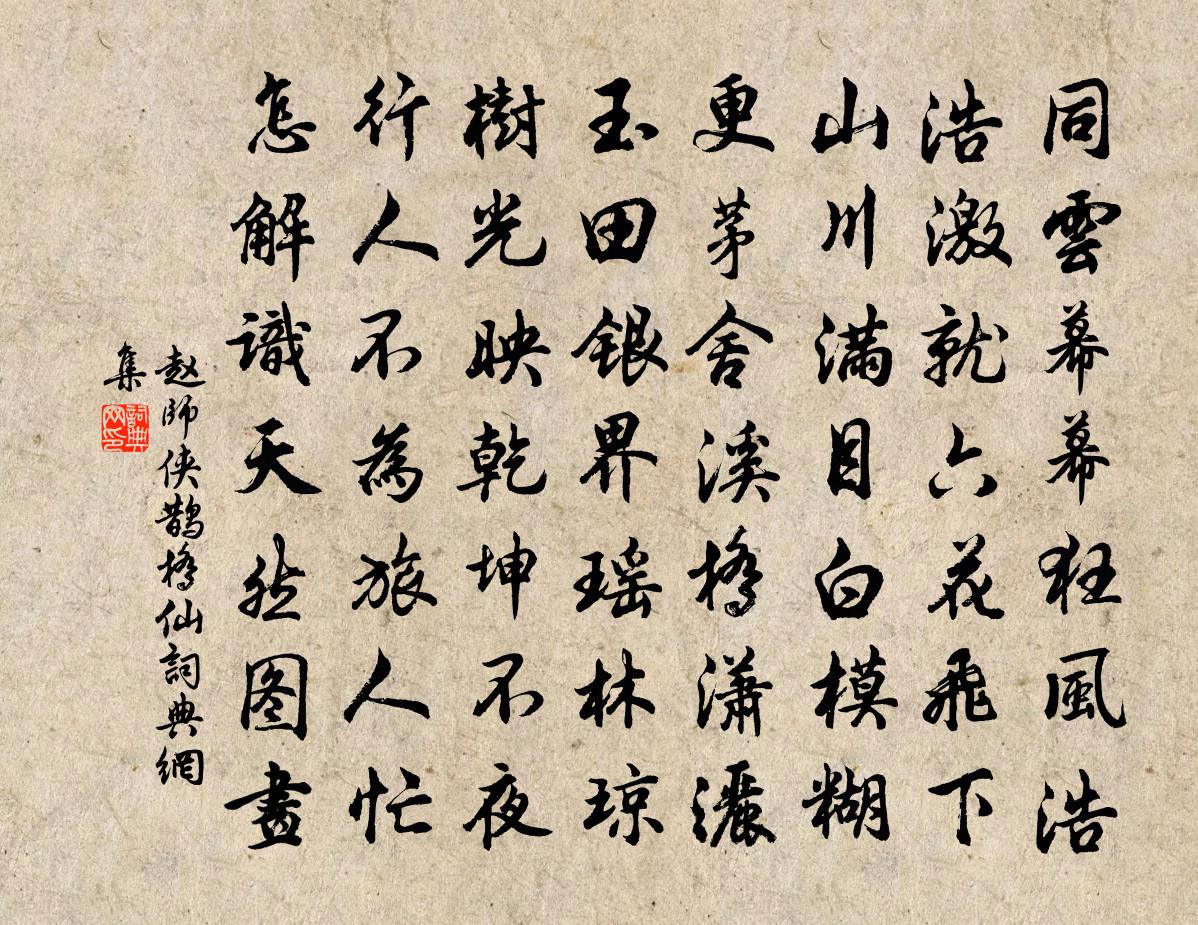 同雲幕幕狂風浩
浩激就六花飛下
山川滿目白模糊
更茅舍溪橋瀟灑
玉田銀界瑶林琼
樹光映乾坤不夜
行人不為旅人忙
怎解識天然图畫
赵師侠鹊橋仙詞典網
集
詞典
网印